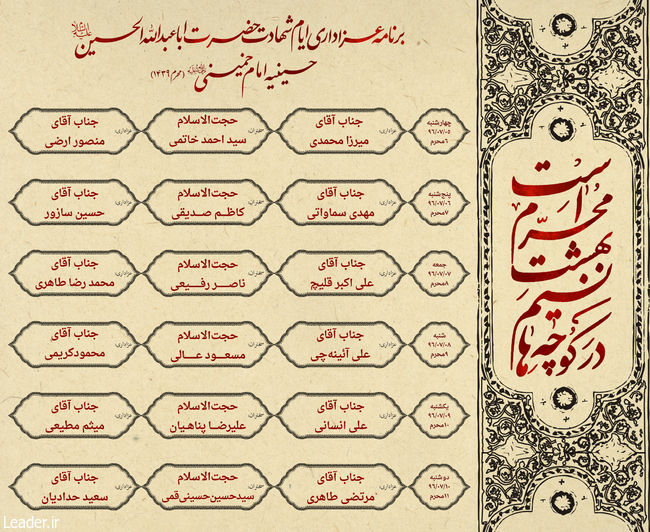 برنامه عزاداری ایام شهادت حضرت اباعبدالله الحسین علیه‌السلام
حسینیه امام خمینی (محرم ۱۴۳۹)
چهارشنبه
۹۶/۰۷/۰۵
۶محرم
عزاداری:
جناب آقای
میرزا محمدی
سخنران:
حجت‌الاسلام
سید احمد خاتمی
عزاداری:
جناب آقای
منصور ارضی
پنج‌شنبه
۹۶/۰۷/۰۶
۷محرم
عزاداری:
جناب آقای
مهدی سماواتی
سخنران:
حجت‌الاسلام
کاظم صدیقی
عزاداری:
جناب آقای
حسین سازور
جمعه
۹۶/۰۷/۰۷
۸محرم
عزاداری:
جناب آقای
علی اکبر قلیچ
سخنران:
حجت‌الاسلام
ناصر رفیعی
عزاداری:
جناب آقای
محمد رضا طاهری
شنبه
۹۶/۰۷/۰۸
۹محرم
عزاداری:
جناب آقای
علی آئینه‌چی
سخنران:
حجت‌الاسلام
مسعود عالی
عزاداری:
جناب آقای
محمودکریمی
یکشنبه
۹۶/۰۷/۰۹
۱۰محرم
عزاداری:
جناب آقای
علی انسانی
سخنران:
حجت‌الاسلام
علیرضا پناهیان
عزاداری:
جناب آقای
میثم مطیعی
دوشنبه
۹۶/۰۷/۱۰
۱۱محرم
عزاداری:
جناب آقای
مرتضی طاهری
سخنران:
حجت‌الاسلام
سیدحسین‌حسینی‌قمی
عزاداری:
جناب آقای
سعید حدادیان
است
محرّم
بهشت
نسیم
در کوچه‌ها
Leader.ir